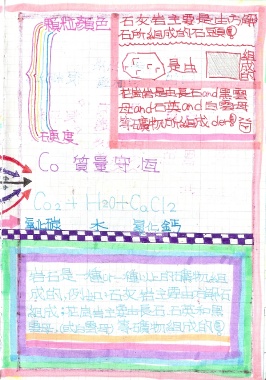 顆粒顏色
石灰岩主要是由方解
石所組成的石頭
是由
組成的
花崗岩是由長石and黑雲
母and石英and白雲母
等礦物所組成der
硬度
Co 質量守恆
Co2 + H2O + CaCl2
氧化碳 水 氯化鈣
岩石是一種or一種以上的礦物組
成的,例如:石灰岩主要由方解石
組成;花崗岩主要由長石石英和黑
雲母,(或白雲母)等礦物組成的